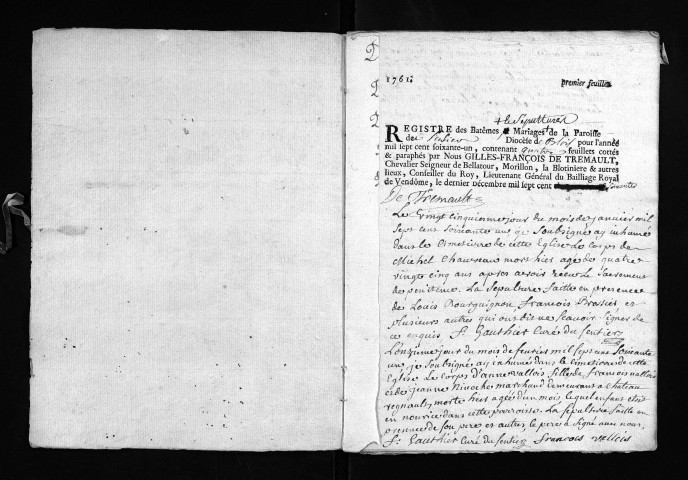 1761.
premier feuillet
& Sepultures
REGISTRE des Batêmes & Mariages de la Paroisse
de Sentier Diocèse de Blois pour l'année
mil sept cent soixante-un, contenant quatre feuillets cottés
& paraphés par Nous GILLES-FRANÇOIS DE TREMAULT,
Chevalier Seigneur de Bellatour, Morillon, la Blotiniere & autres
lieux, Conseiller du Roy, Lieutenant Général du Bailliage Royal
de Vendôme, le dernier Décembre mil sept cent soixante
De Tremault
Le vingt cinquieme jour du mois de janvier mil
sept cent soixante un je Soubsigné ay inhumé
dans le Cimetiere de cette Eglise Le corps de
Michel Chauveau mort hier agé de quatre
vingt cinq ans apres avoir receu le sacrement
de penitence. La Sepulture faitte en presence
de Louis Bourguignon francois Brassier et
plusieurs autres qui ont dit ne scavoir signer de
ce enquis f. Gauthier Curé du Sentier
L'onzieme jour du mois de feuvrier mil sept cent soixante
un je Soubsigné ay inhumé dans le Cimetiere de cette
Eglise Le corps d'anne vallois fille de francois vallois
et de jeanne marchand demeurant a chateau
regnault morte hier agée d'un mois lequel enfant etoit
en nourice dans cette paroisse. La sepulture faitte en
presence de son pere et autres, le pere a signé avec nous
f. Gauthier Curé du Sentier francois vallois